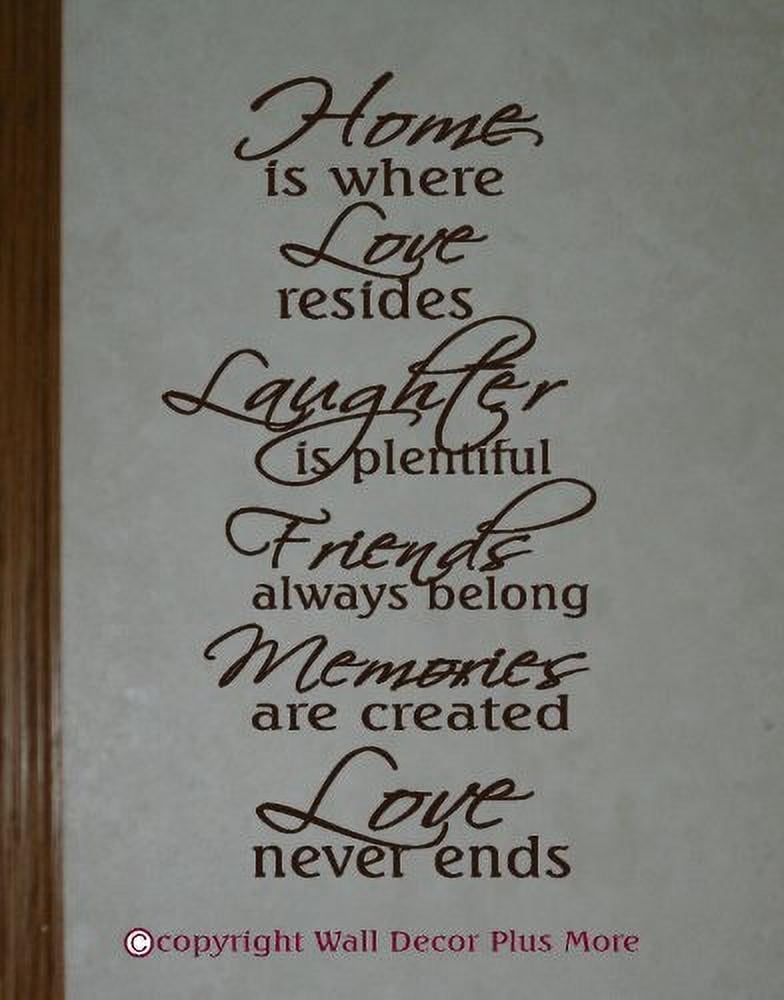 Home
is where
Love
resides
Laughter
is plentiful
Friends
always belong
Memories
are created
Love
never ends
©copyright Wall Decor Plus More